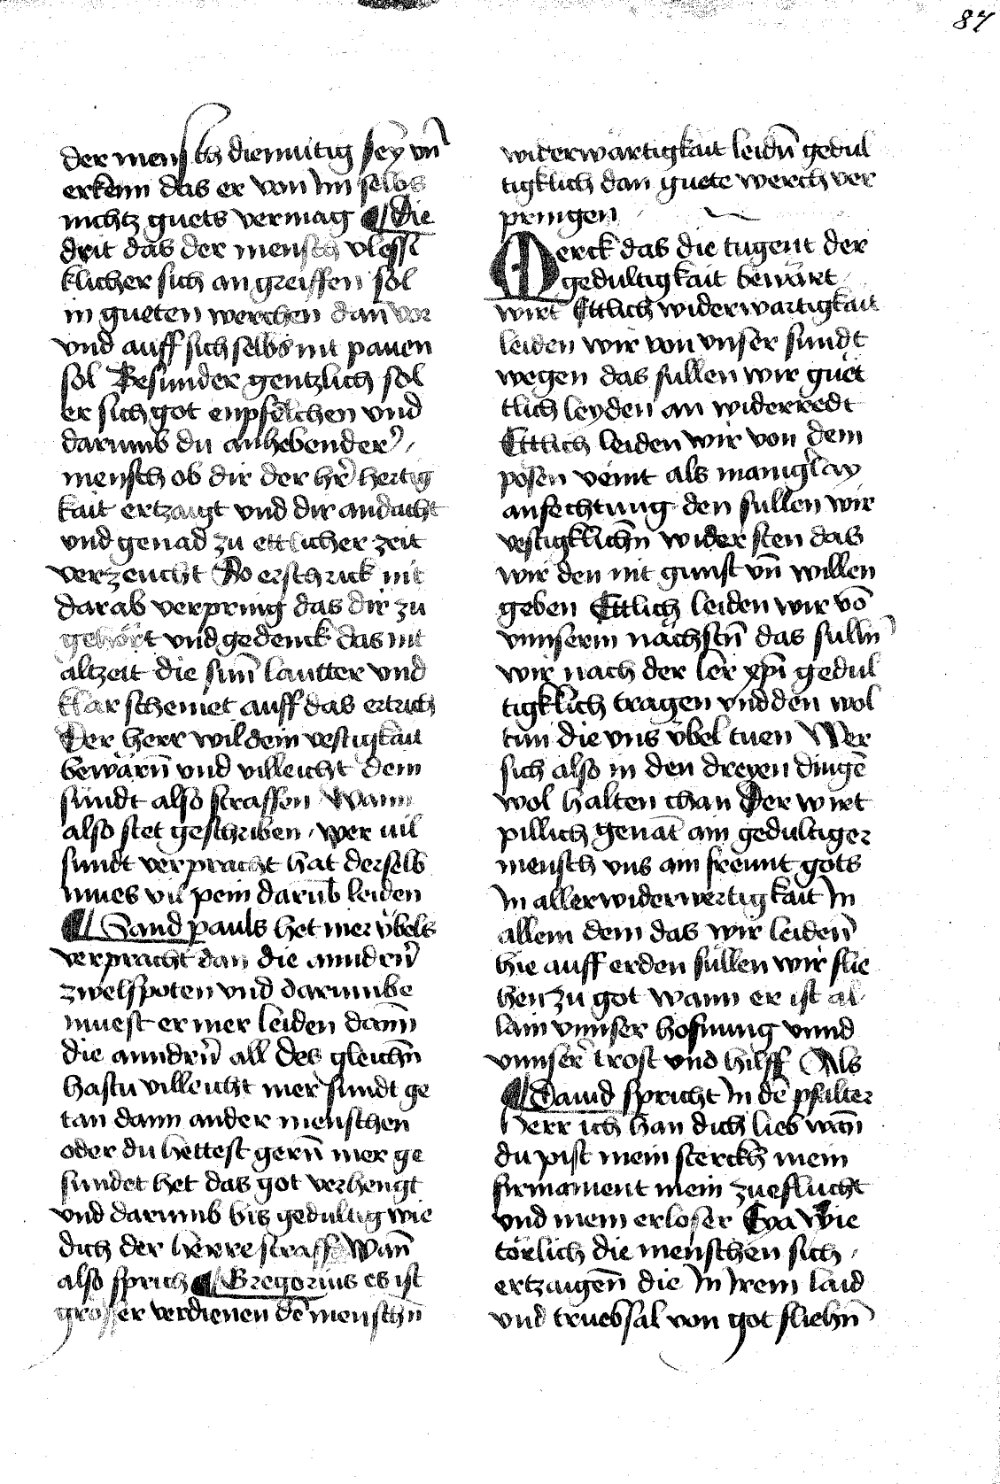 87
der mensch diemütig sey vn̄
erkenn das er von im selbs
nichtz guets vermag ¶ Die
drit das der mensch vlessi
klicher sich angreiffen sol
in gueten werchen dan̄ vor
vnd auff sich selbs nit pauen
sol Besunder gentzlich sol
er sich got enpfelchen vnd
darumb du anhebender
mensch ob dir der hr̄ hertig
kait ertzaigt vnd dir andacht
vnd genad zu ettlicher zeit
verzeucht So erschrick nit
darab verpring das dir zu
gehört vnd gedenck das nit
altzeit die sun̄ lautter vnd
klar scheinet auff das ertrich
Der herr wil dein vestigkait
bewärn̄ vnd villeicht dein
sündt also straffen Wann
also stet geschriben / wer uil
sündt verpracht hat derselb
mues vil pein darūb leiden
¶ Sand pauls het mer vbels
verpracht dan die anndern̄
zwelfpoten vnd darumbe
muest er mer leiden dann̄
die anndern̄ all Des gleichn̄
hastu villeicht mer sündt ge
tan dann ander menschen
oder du hettest gern̄ mer ge
sündet het das got verhengt
vnd darumb bis gedultig wie
dich der herre straff Wan̄
also sprich ¶ Gregorius es ist
grösser verdienen dē menschn̄
widerwärtigkait leidn̄ gedul
tigklich dan guete werch ver
pringen
Merck das die tugent der
gedultigkait bewärt
wirt Ettlich widerwärtigkait
leiden wir von vnser sündt
wegen das sullen wir güet
tlich leyden an widerredt
Ettlich leiden wir von dem
posen veint als manigslay
anfechtung den sullen wir
vestigklichn̄ widersten das
wir den nit gunst vn̄ willen
geben Ettlich leiden wir vō
vnnserm nächstn̄ das sulln̄
wir nach der ler xp̄i gedul
tigklich tragen vnd den wol
tun die vns vbel tuen Wer
sich also in den dreyen dingē
wol halten chan Der wirt
pillich genāt ain gedultiger
mensch vns ain freunt gots
In aller widerwertigkait In
allem dem das wir leiden̄
hie auff erden süllen wir flie
hen zu got wann er ist al
lain vnnser hofnung vnnd
vnnser trost vnd hilff Als
¶ Dauid spricht In dē psalter
herr ich han dich lieb wan̄
du pist mein sterckh mein
firmament mein zueflucht
vnd mein erloser Eya Wie
törlich die menschen sich /
ertzaigen̄ die In Irem laid
vnd truebsal von got fliehn̄